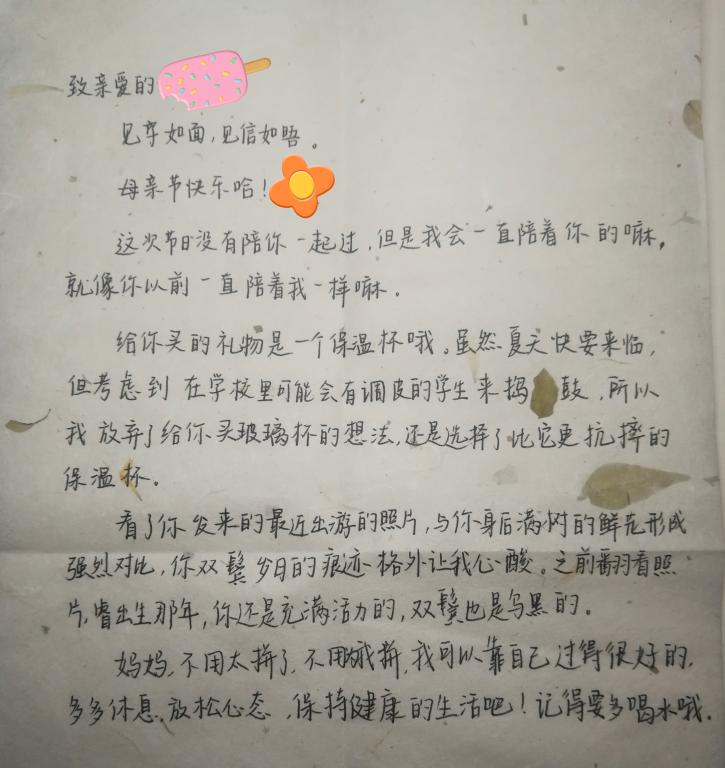 致亲爱的
见字如面，见信如晤。
母亲节快乐哈！
这次节日没有陪你一起过，但是我会一直陪着你的嘛，
就像你以前一直陪着我一样嘛。
给你买的礼物是一个保温杯哦。虽然夏天快要来临，
但考虑到在学校里可能会有调皮的学生来捣鼓，所以
我放弃了给你买玻璃杯的想法，还是选择了比它更抗摔的
保温杯。
看了你发来的最近出游的照片，与你身后满树的鲜花形成
强烈对比，你双鬓岁月的痕迹格外让我心酸。之前翻看照
片，睿出生那年，你还是充满活力的，双鬓也是乌黑的。
妈妈，不用太拼了，不用哦拼，我可以靠自己过得很好的，
多多休息，放松心态，保持健康的生活吧！记得要多喝水哦.